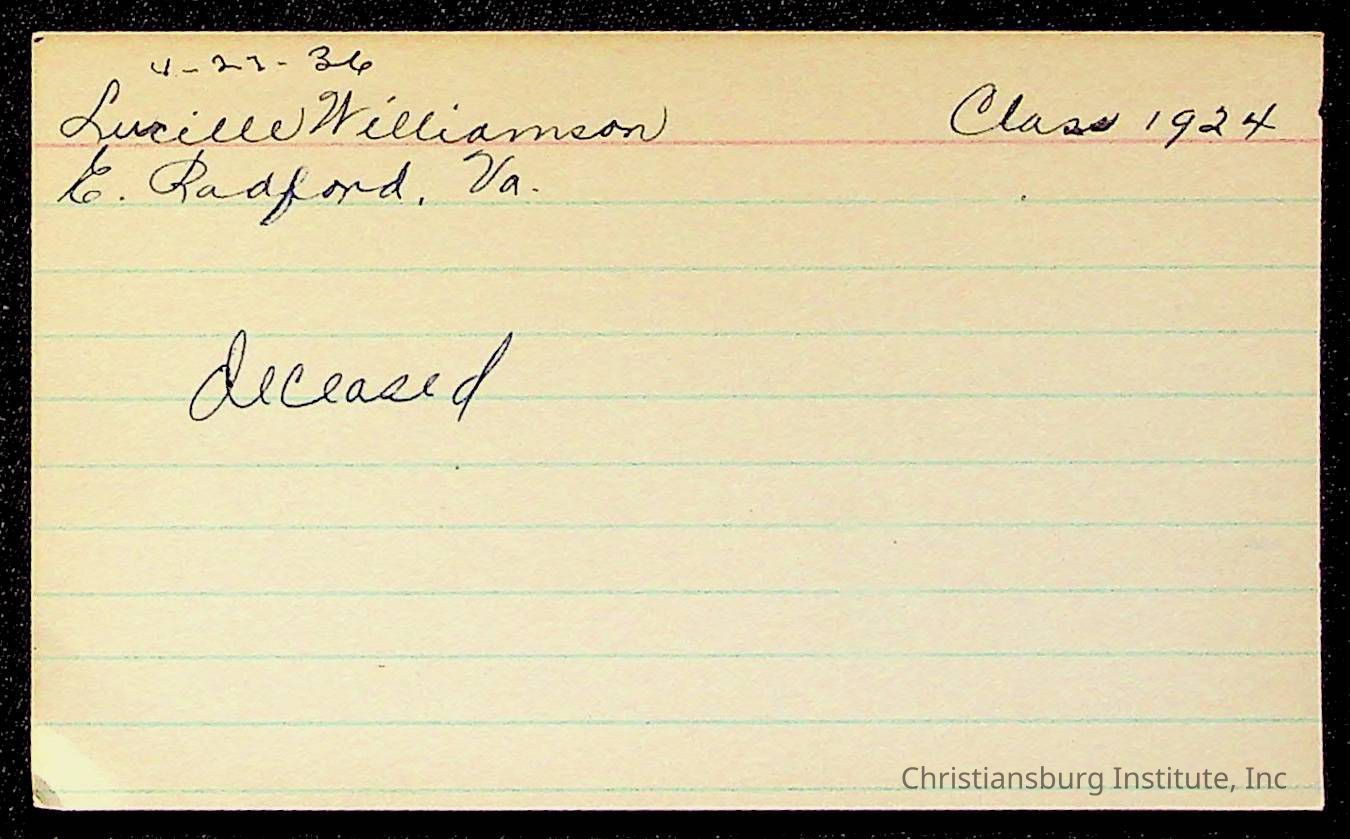 4-27-36
Lucille Williamson Class 1924
E. Radford, Va.
deceased
Christiansburg Institute, Inc